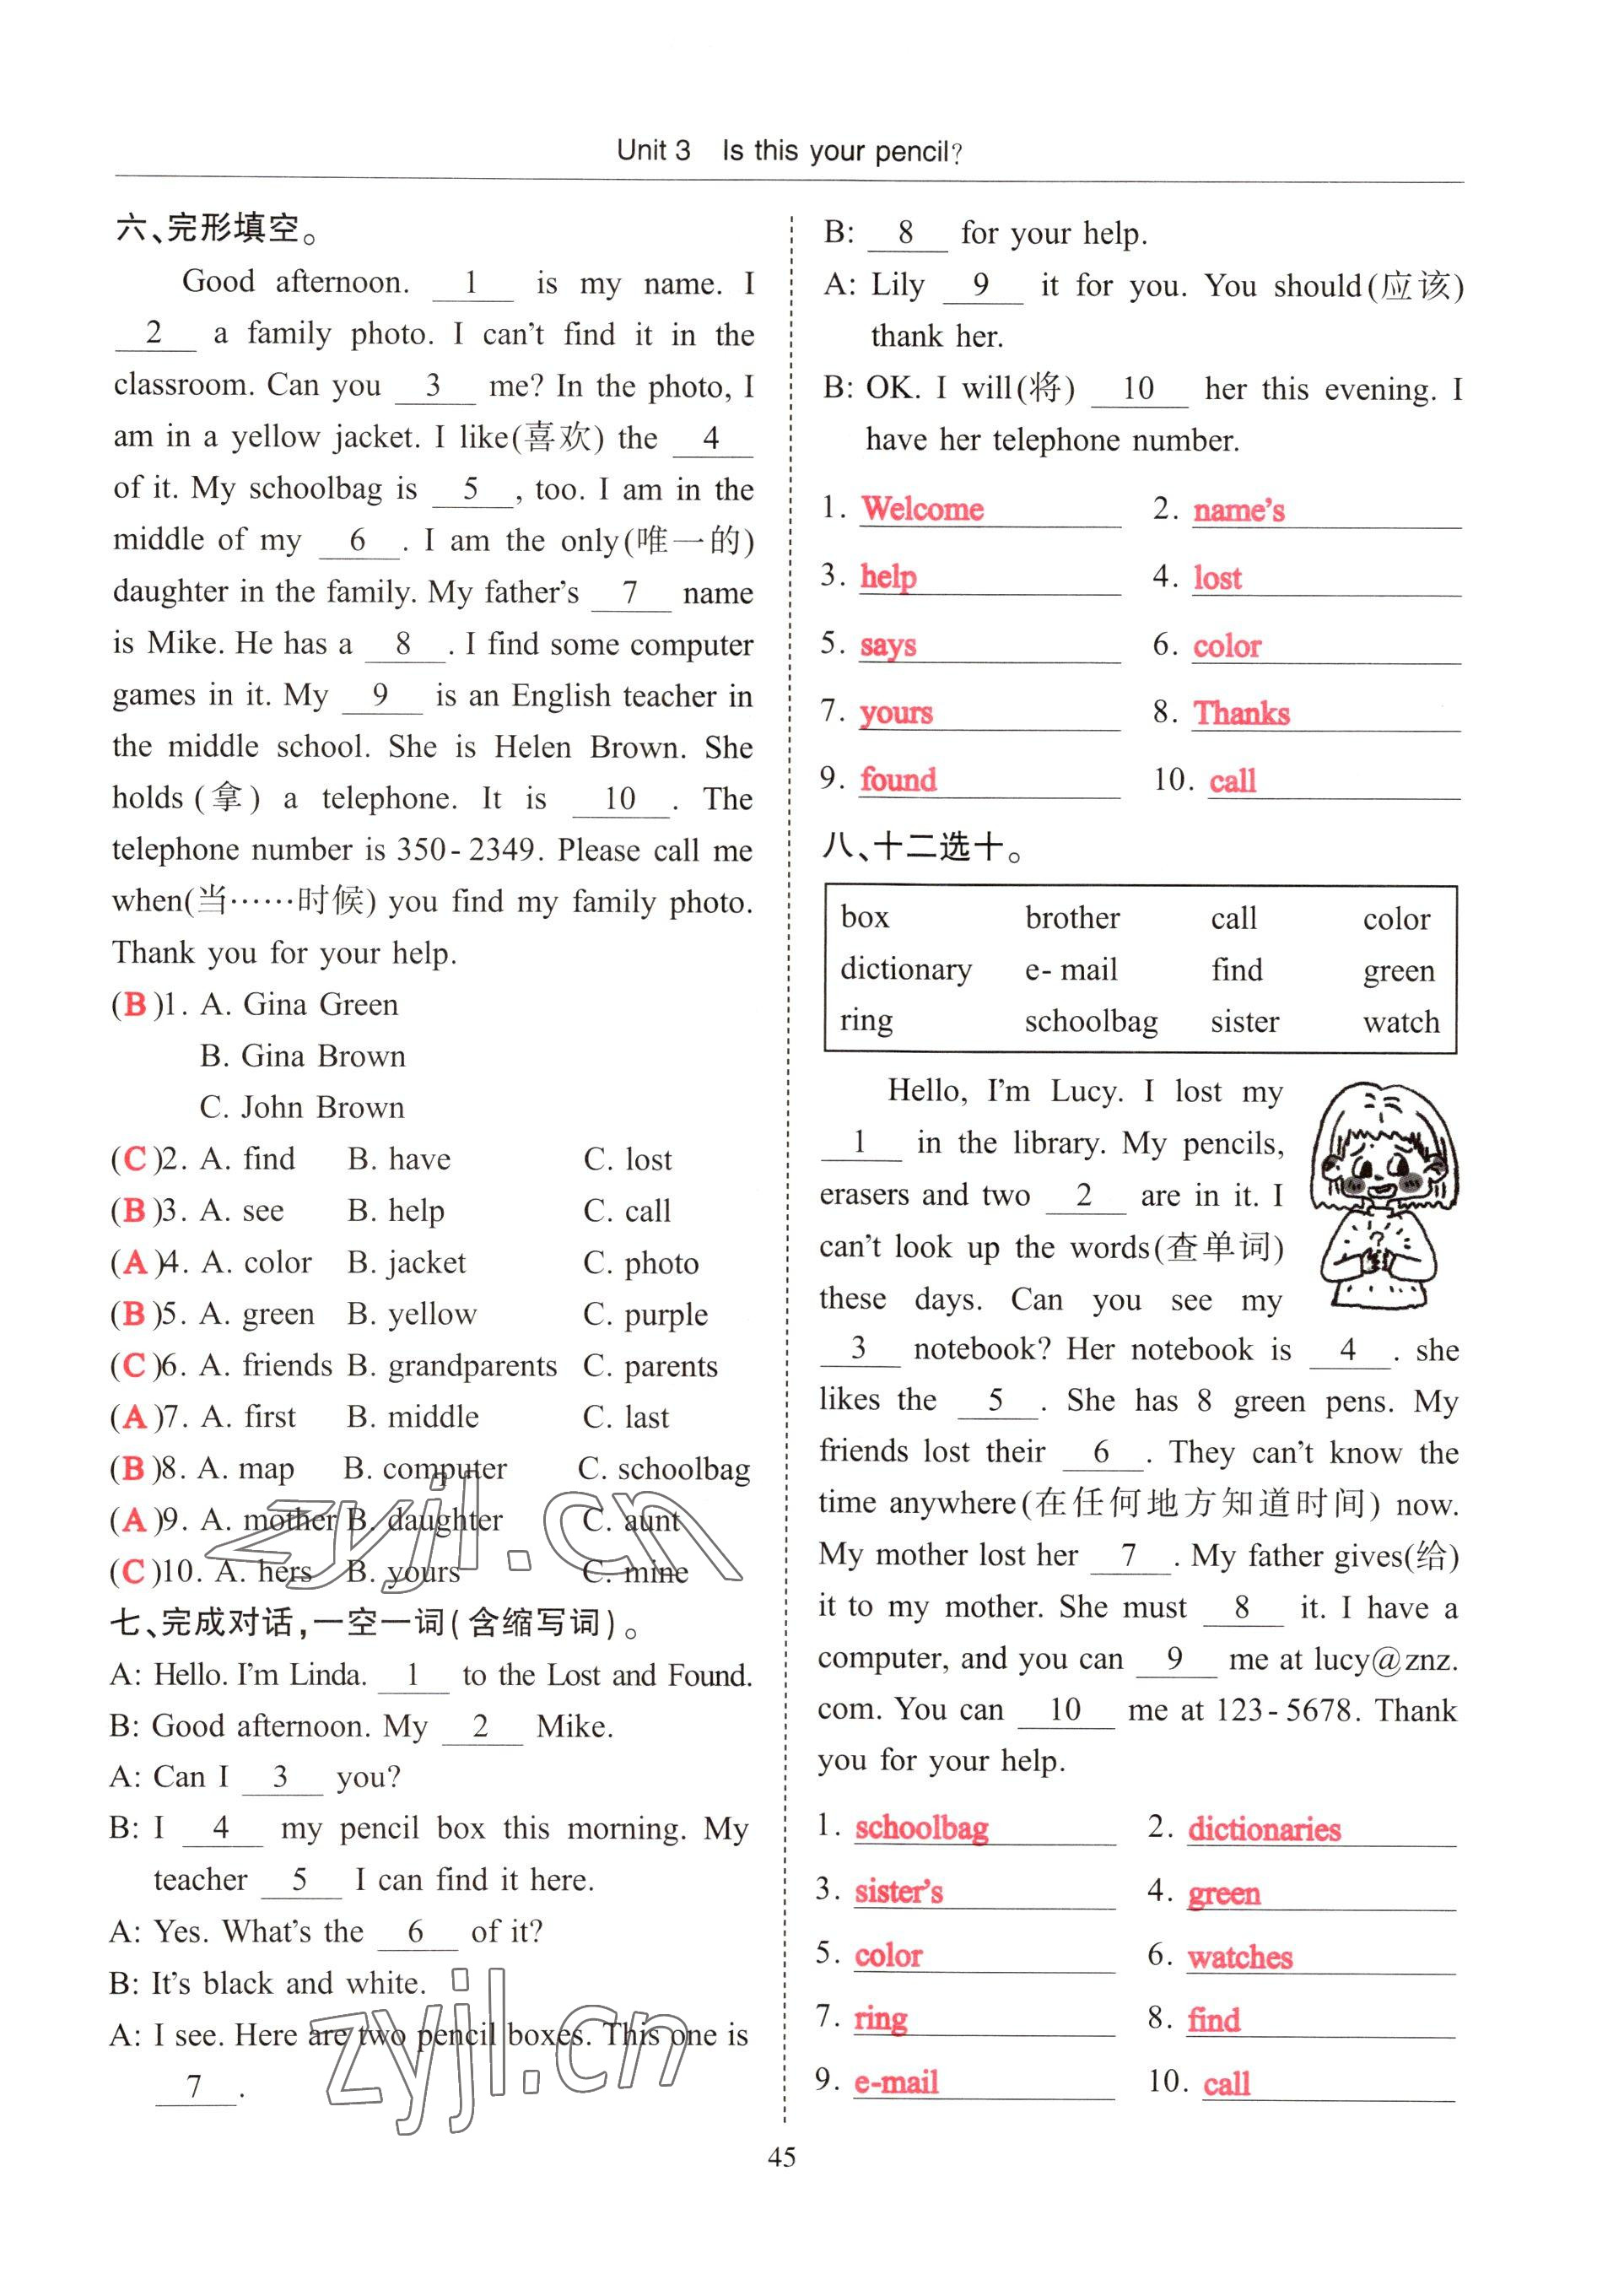 Unit 3 Is this your pencil?
六、完形填空。
Good afternoon. 1 is my name. I
2 a family photo. I can't find it in the
classroom. Can you 3 me? In the photo, I
am in a yellow jacket. I like(喜欢) the 4
of it. My schoolbag is 5 , too. I am in the
middle of my 6 . I am the only(唯一的)
daughter in the family. My father's 7 name
is Mike. He has a 8 . I find some computer
games in it. My 9 is an English teacher in
the middle school. She is Helen Brown. She
holds(拿) a telephone. It is 10 . The
telephone number is 350-2349. Please call me
when(当……时候) you find my family photo.
Thank you for your help.
(B)1. A. Gina Green
B. Gina Brown
C. John Brown
(C)2. A. find B. have C. lost
(B)3. A. see B. help C. call
(A)4. A. color B. jacket C. photo
(B)5. A. green B. yellow C. purple
(C)6. A. friends B. grandparents C. parents
(A)7. A. first B. middle C. last
(B)8. A. map B. computer C. schoolbag
(A)9. A. mother B. daughter C. aunt
(C)10. A. hers B. yours C. mine
七、完成对话,一空一词(含缩写词)。
A: Hello. I'm Linda. 1 to the Lost and Found.
B: Good afternoon. My 2 Mike.
A: Can I 3 you?
B: I 4 my pencil box this morning. My
teacher 5 I can find it here.
A: Yes. What's the 6 of it?
B: It's black and white.
A: I see. Here are two pencil boxes. This one is
7 .
B: 8 for your help.
A: Lily 9 it for you. You should(应该)
thank her.
B: OK. I will(将) 10 her this evening. I
have her telephone number.
1. Welcome 2. name's
3. help 4. lost
5. says 6. color
7. yours 8. Thanks
9. found 10. call
八、十二选十。
box brother call color
dictionary e-mail find green
ring schoolbag sister watch
Hello, I'm Lucy. I lost my
1 in the library. My pencils,
erasers and two 2 are in it. I
can't look up the words(查单词)
these days. Can you see my
3 notebook? Her notebook is 4 . she
likes the 5 . She has 8 green pens. My
friends lost their 6 . They can't know the
time anywhere(在任何地方知道时间) now.
My mother lost her 7 . My father gives(给)
it to my mother. She must 8 it. I have a
computer, and you can 9 me at lucy@znz.
com. You can 10 me at 123-5678. Thank
you for your help.
1. schoolbag 2. dictionaries
3. sister's 4. green
5. color 6. watches
7. ring 8. find
9. e-mail 10. call
zyjl.cn
zyjl.cn
45